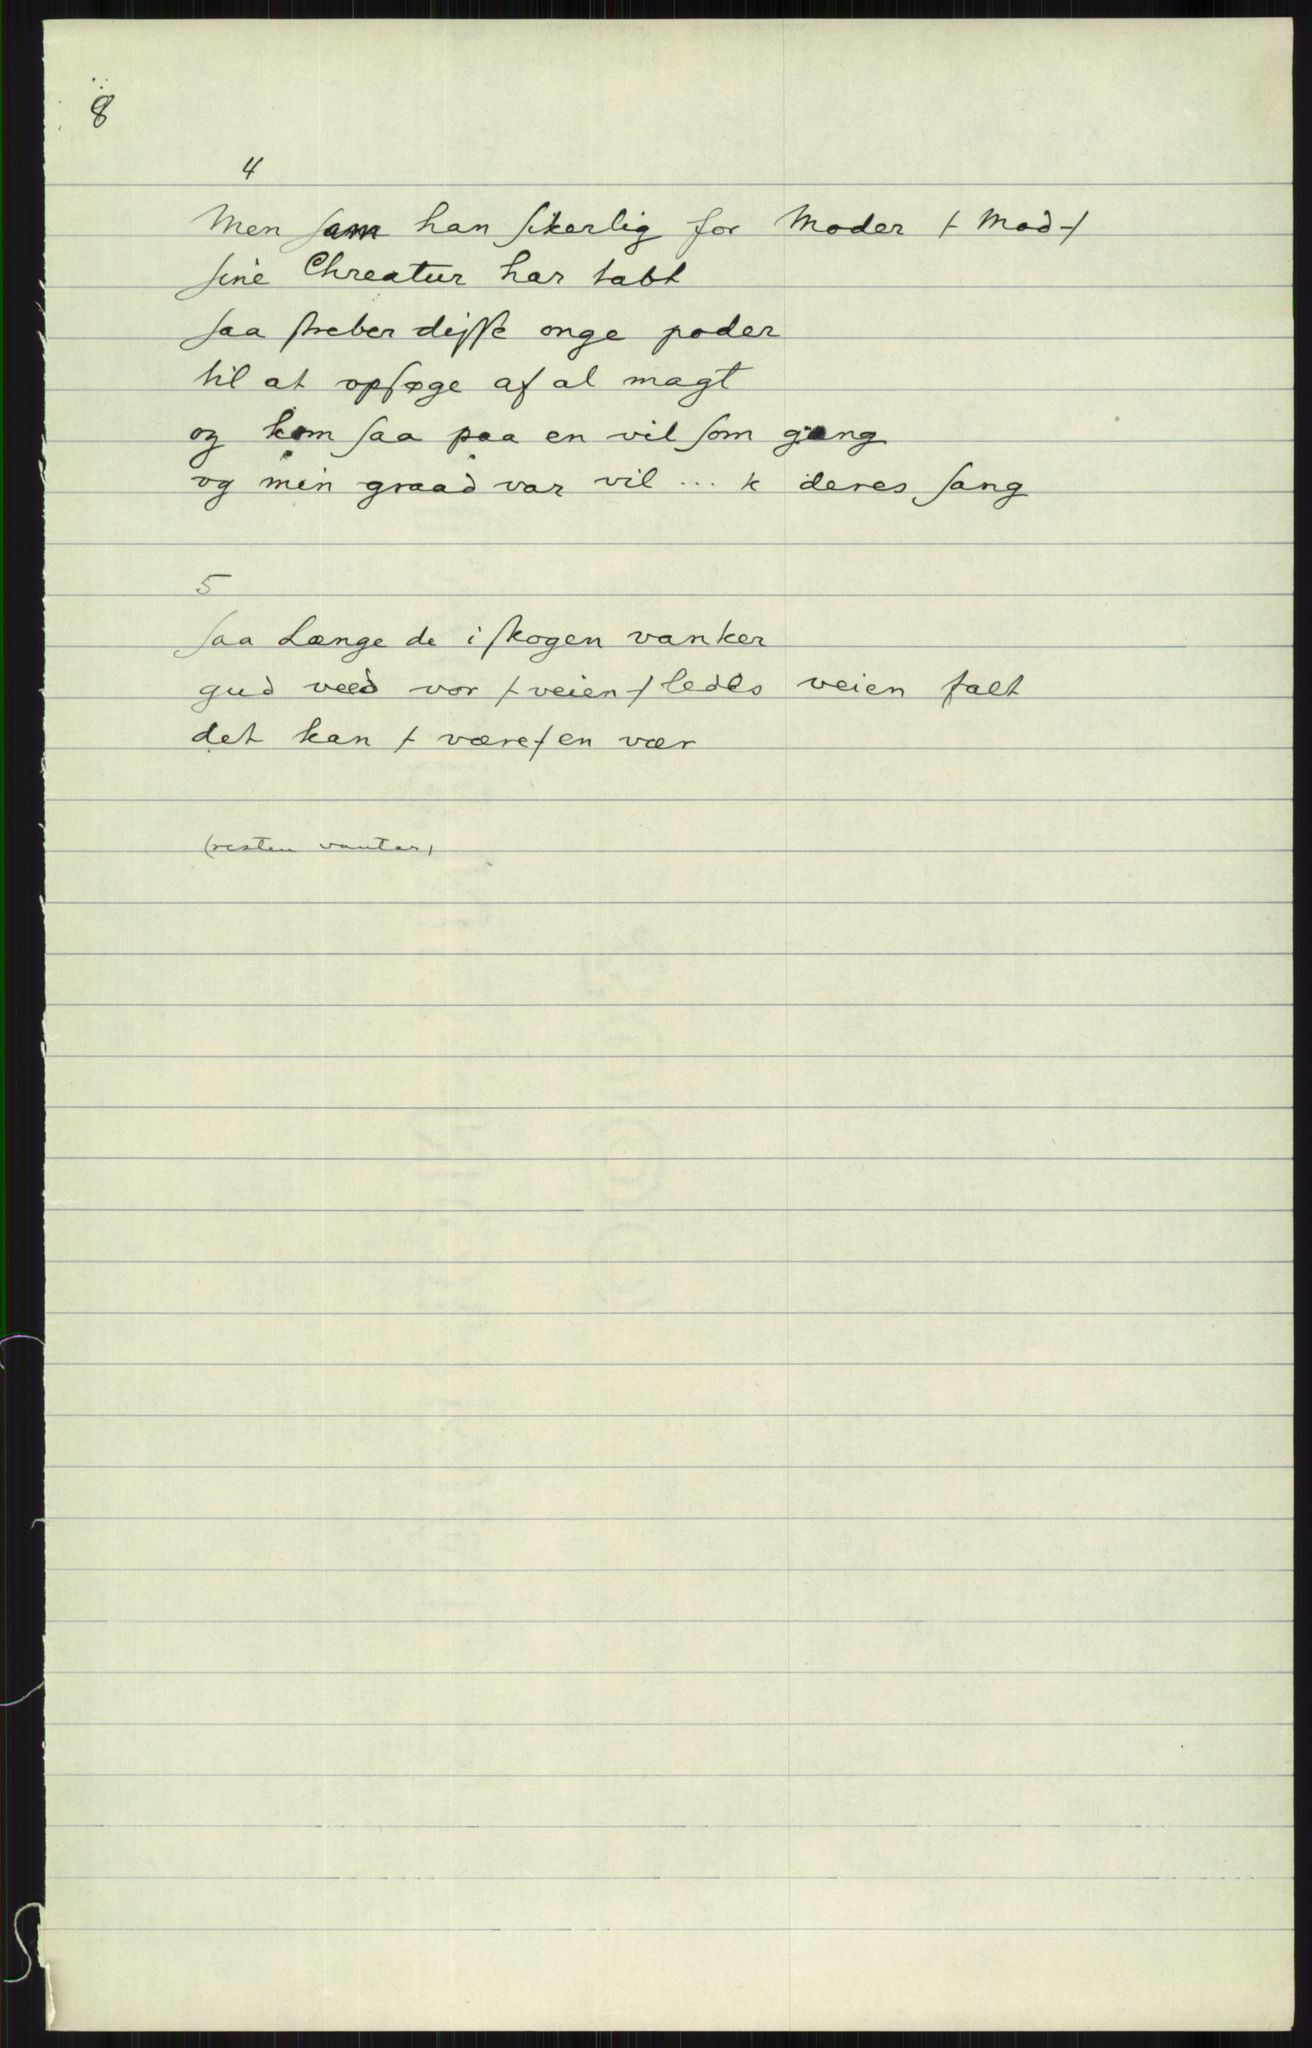 8
4
Men som han sikerlig for Moder / Mod /
sine Chreatur har tabt
saa streber disse onge poder
til at opsøge af al magt
og kom saa paa en vil som gang
og min graad var vil ... k deres sang
5
saa Længe de i skogen vanker
gud veed vor / veien / ledes veien falt
det kan / være / en vær
(resten vantar)